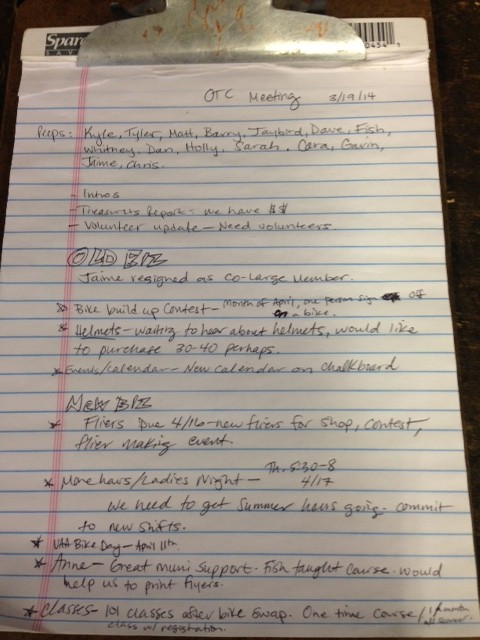 Spar
0434 1
OTC Meeting 3/19/14
Peeps: Kyle, Tyler, Matt, Barry, Jaybird, Dave, Fish,
Whitney, Dan, Holly, Sarah, Cara, Gavin,
Jaime, Chris.
- Intros
- Treasurers Report - we have $$
- Volunteer update - Need volunteers
OLD BIZ
Jaime resigned as co-Large Member.
* Bike build up Contest - Month of April, one person sign off
on a bike.
* Helmets - waiting to hear about helmets, would like
to purchase 30-40 perhaps.
* Events/calendar - New calendar on chalkboard
NEW BIZ
* Fliers Due 4/16 - new fliers for shop, contest,
flier making event.
* More hours/Ladies Night - Th. 5:30-8
4/17
We need to get Summer hours going - commit
to new shifts.
* Bike Day - April 11th.
* Anne - Great muni support. Fish taught course. would
help us to print flyers.
* Classes - 101 classes after bike swap. One time course/
class w/ registration.